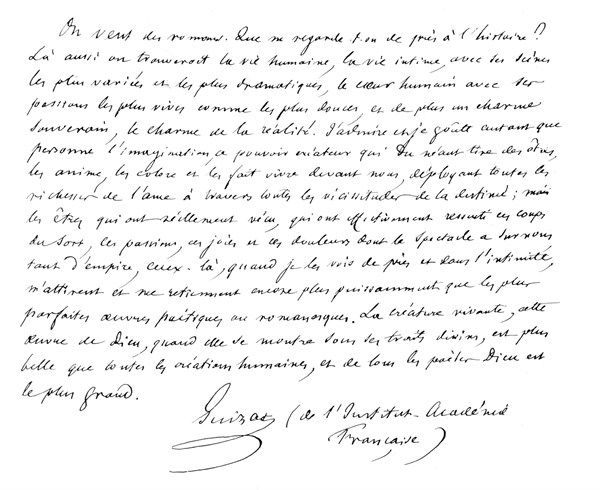 On veut des romans. Que ne regarde-t-on de près à l'histoire ?
Là aussi on trouveroit la vie humaine, la vie intime, avec ses scènes
les plus variées et les plus dramatiques, le cœur humain avec ses
passions les plus vives comme les plus douces, et de plus un charme
souverain, le charme de la réalité. J'admire et je goûte autant que
personne l'imagination, ce pouvoir créateur qui du néant tire des êtres,
les anime, les colore et les fait vivre devant nous, déployant toutes les
richesses de l'âme à travers toutes les vicissitudes de la destinée ; mais
les êtres qui ont réellement vécu, qui ont effectivement ressenti ces coups
du sort, ces passions, ces joies et ces douleurs dont le spectacle a sur nous
tant d'empire, ceux-là, quand je les vois de près et dans l'intimité,
m'attirent et me retiennent encore plus puissamment que les plus
parfaites œuvres poétiques ou romanesques. La créature vivante, cette
œuvre de Dieu, quand elle se montre sous ses traits divins, est plus
belle que toutes les créations humaines, et de tous les poëtes Dieu est
le plus grand.
Guizot (de l'Institut-Académie
Française)